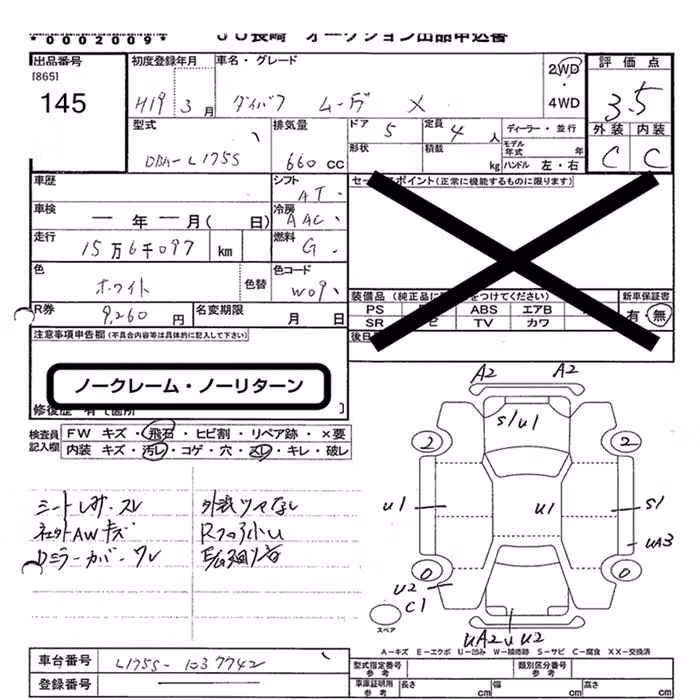 *0002009*
JU長崎 オークション出品申込書
出品番号 [865] 145
初度登録年月 H19 3月
車名・グレード ダイハツ ムーヴ X
2WD
4WD
評価点 3.5
外装 内装
C C
型式 DBA-L175S
排気量 660cc
ドア 5
定員 4人
ディーラー・並行
形状
積載 kg
モデル年式 年
ハンドル 左・右
車歴
シフト AT
車検 ー年ー月( 日)
冷房 AAC
走行 15万6千097 km
燃料 G
色 ホワイト
色替
色コード W09
R券 9,260円
名変期限 月 日
セールスポイント(正常に機能するものに限ります)
装備品
新車保証書
有・無
PS
ABS エアB
SR
TV カワ
注意事項申告欄(不具合内容等は具体的に記入して下さい)
ノークレーム・ノーリターン
修復歴 有て箇所
検査員記入欄
FW キズ・飛石・ヒビ割・リペア跡・×要
内装 キズ・汚レ・コゲ・穴・スレ・キレ・破レ
シート
AWキズ
ミラーカバー
外装ツヤなし
A2 A2
s1u1
2 2
u1 u1 s1
uA3
0 0
u2
c1
uA2 u u2
スペア
A-キズ E-エクボ U-凹み W-補修跡 S-サビ C-腐食 XX-交換済
車台番号 L175S-1037742
登録番号
型式指定番号 参考
類別区分番号 参考
車庫証明用 参考 長さ cm 幅 cm 高さ cm